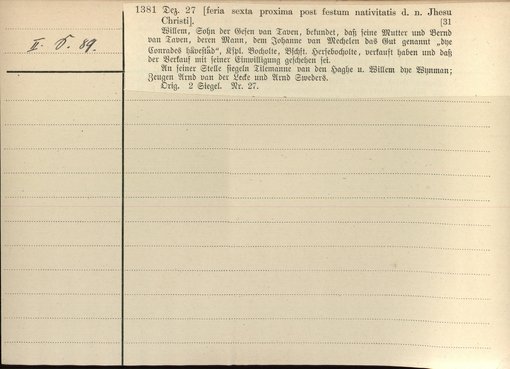 1381 Dez. 27 [feria sexta proxima post festum nativitatis d. n. Jhesu
Christi]. [31
Willem, Sohn der Gesen van Taven, bekundet, daß seine Mutter und Bernd
van Taven, deren Mann, dem Johanne van Mechelen das Gut genannt „dye
Conrades hävestäd“, Kspl. Bocholte, Bschft. Hersebocholte, verkauft haben und daß
der Verkauf mit seiner Einwilligung geschehen sei.
An seiner Stelle siegeln Tilemanne van den Haghe u. Willem dye Wynman;
Zeugen Arnd van der Lecke und Arnd Sweders.
Orig. 2 Siegel. Nr. 27.
II. S. 89.